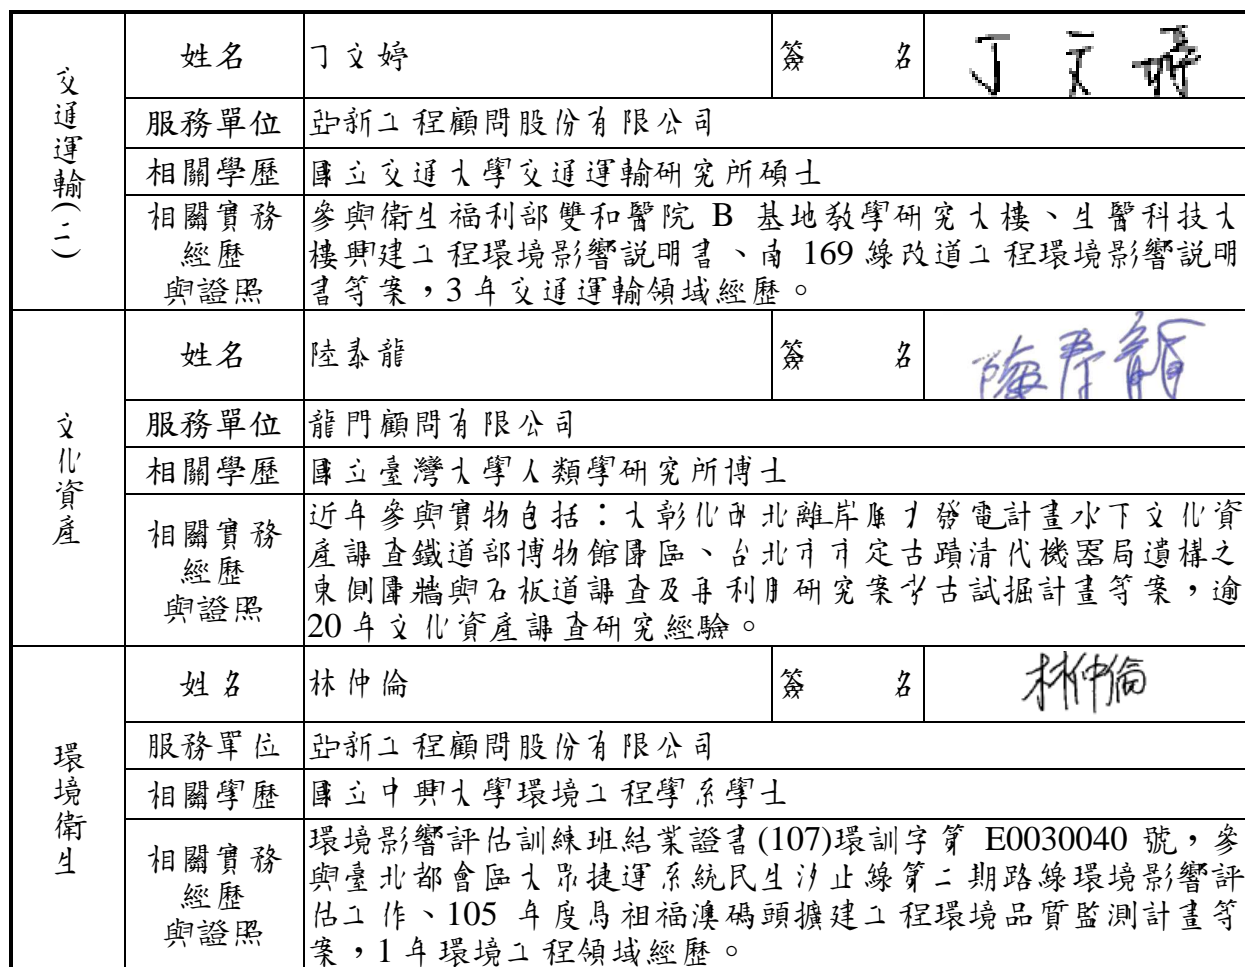 交通運輸(二)
姓名 丁文婷 簽 名 丁文婷
服務單位 亞新工程顧問股份有限公司
相關學歷 國立交通大學交通運輸研究所碩士
相關實務經歷與證照
參與衛生福利部雙和醫院 B 基地教學研究大樓、生醫科技大
樓興建工程環境影響說明書、南 169 線改道工程環境影響說明
書等案，3 年交通運輸領域經歷。
文化資產
姓名 陸泰龍 簽 名 陸泰龍
服務單位 龍門顧問有限公司
相關學歷 國立臺灣大學人類學研究所博士
相關實務經歷與證照
近年參與實物包括：大彰化西北離岸風力發電計畫水下文化資
產調查鐵道部博物館園區、台北市市定古蹟清代機器局遺構之
東側圍牆與石板道調查及再利用研究案考古試掘計畫等案，逾
20 年文化資產調查研究經驗。
環境衛生
姓名 林仲倫 簽 名 林仲倫
服務單位 亞新工程顧問股份有限公司
相關學歷 國立中興大學環境工程學系學士
相關實務經歷與證照
環境影響評估訓練班結業證書(107)環訓字第 E0030040 號，參
與臺北都會區大眾捷運系統民生汐止線第二期路線環境影響評
估工作、105 年度馬祖福澳碼頭擴建工程環境品質監測計畫等
案，1 年環境工程領域經歷。